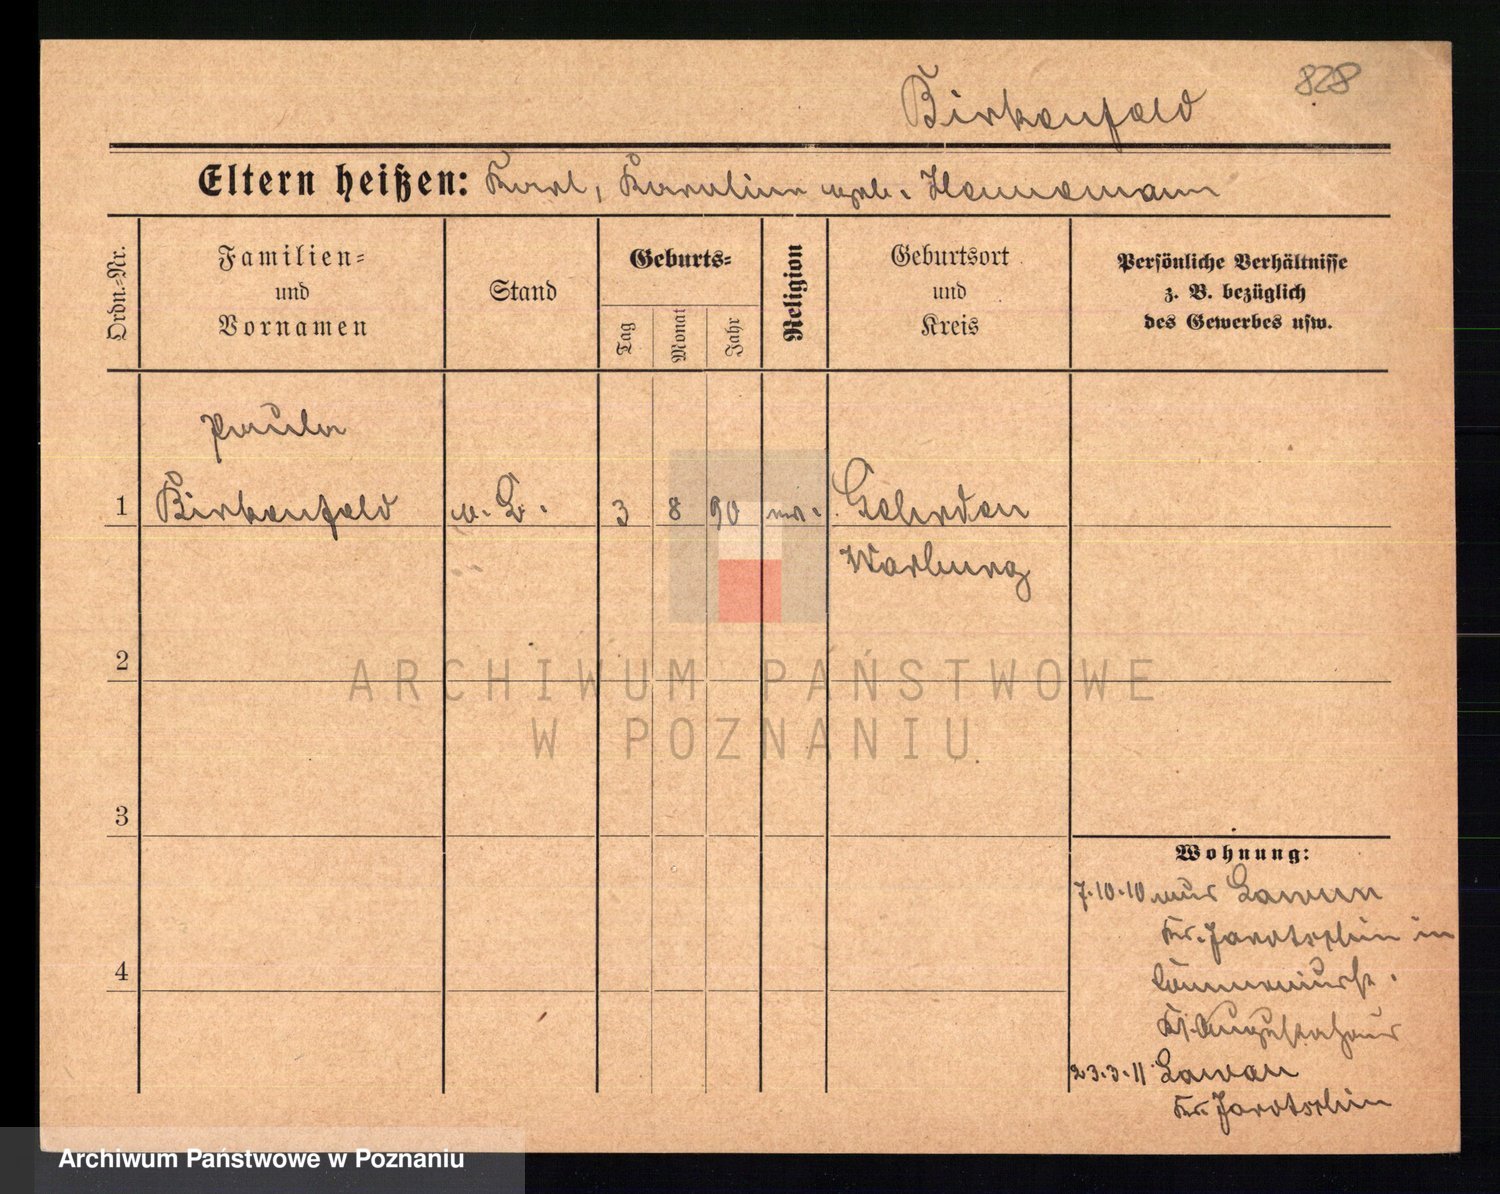 828
Birkenfeld
Eltern heißen: Karl, Karoline geb. Hennemann
Ordn.-Nr.
Familien-
und
Vornamen
Stand
Geburts-
Tag
Monat
Jahr
Religion
Geburtsort
und
Kreis
Persönliche Verhältnisse
z. B. bezüglich
des Gewerbes usw.
Paula
1 Birkenfeld o. B. 3 8 90 ev. Gehrden
Warburg
2
ARCHIWUM PAŃSTWOWE
W POZNANIU
3
Wohnung:
7.10.10 aus
Kr. Jarotschin in
4
23.3.11
Kr. Jarotschin
Archiwum Państwowe w Poznaniu